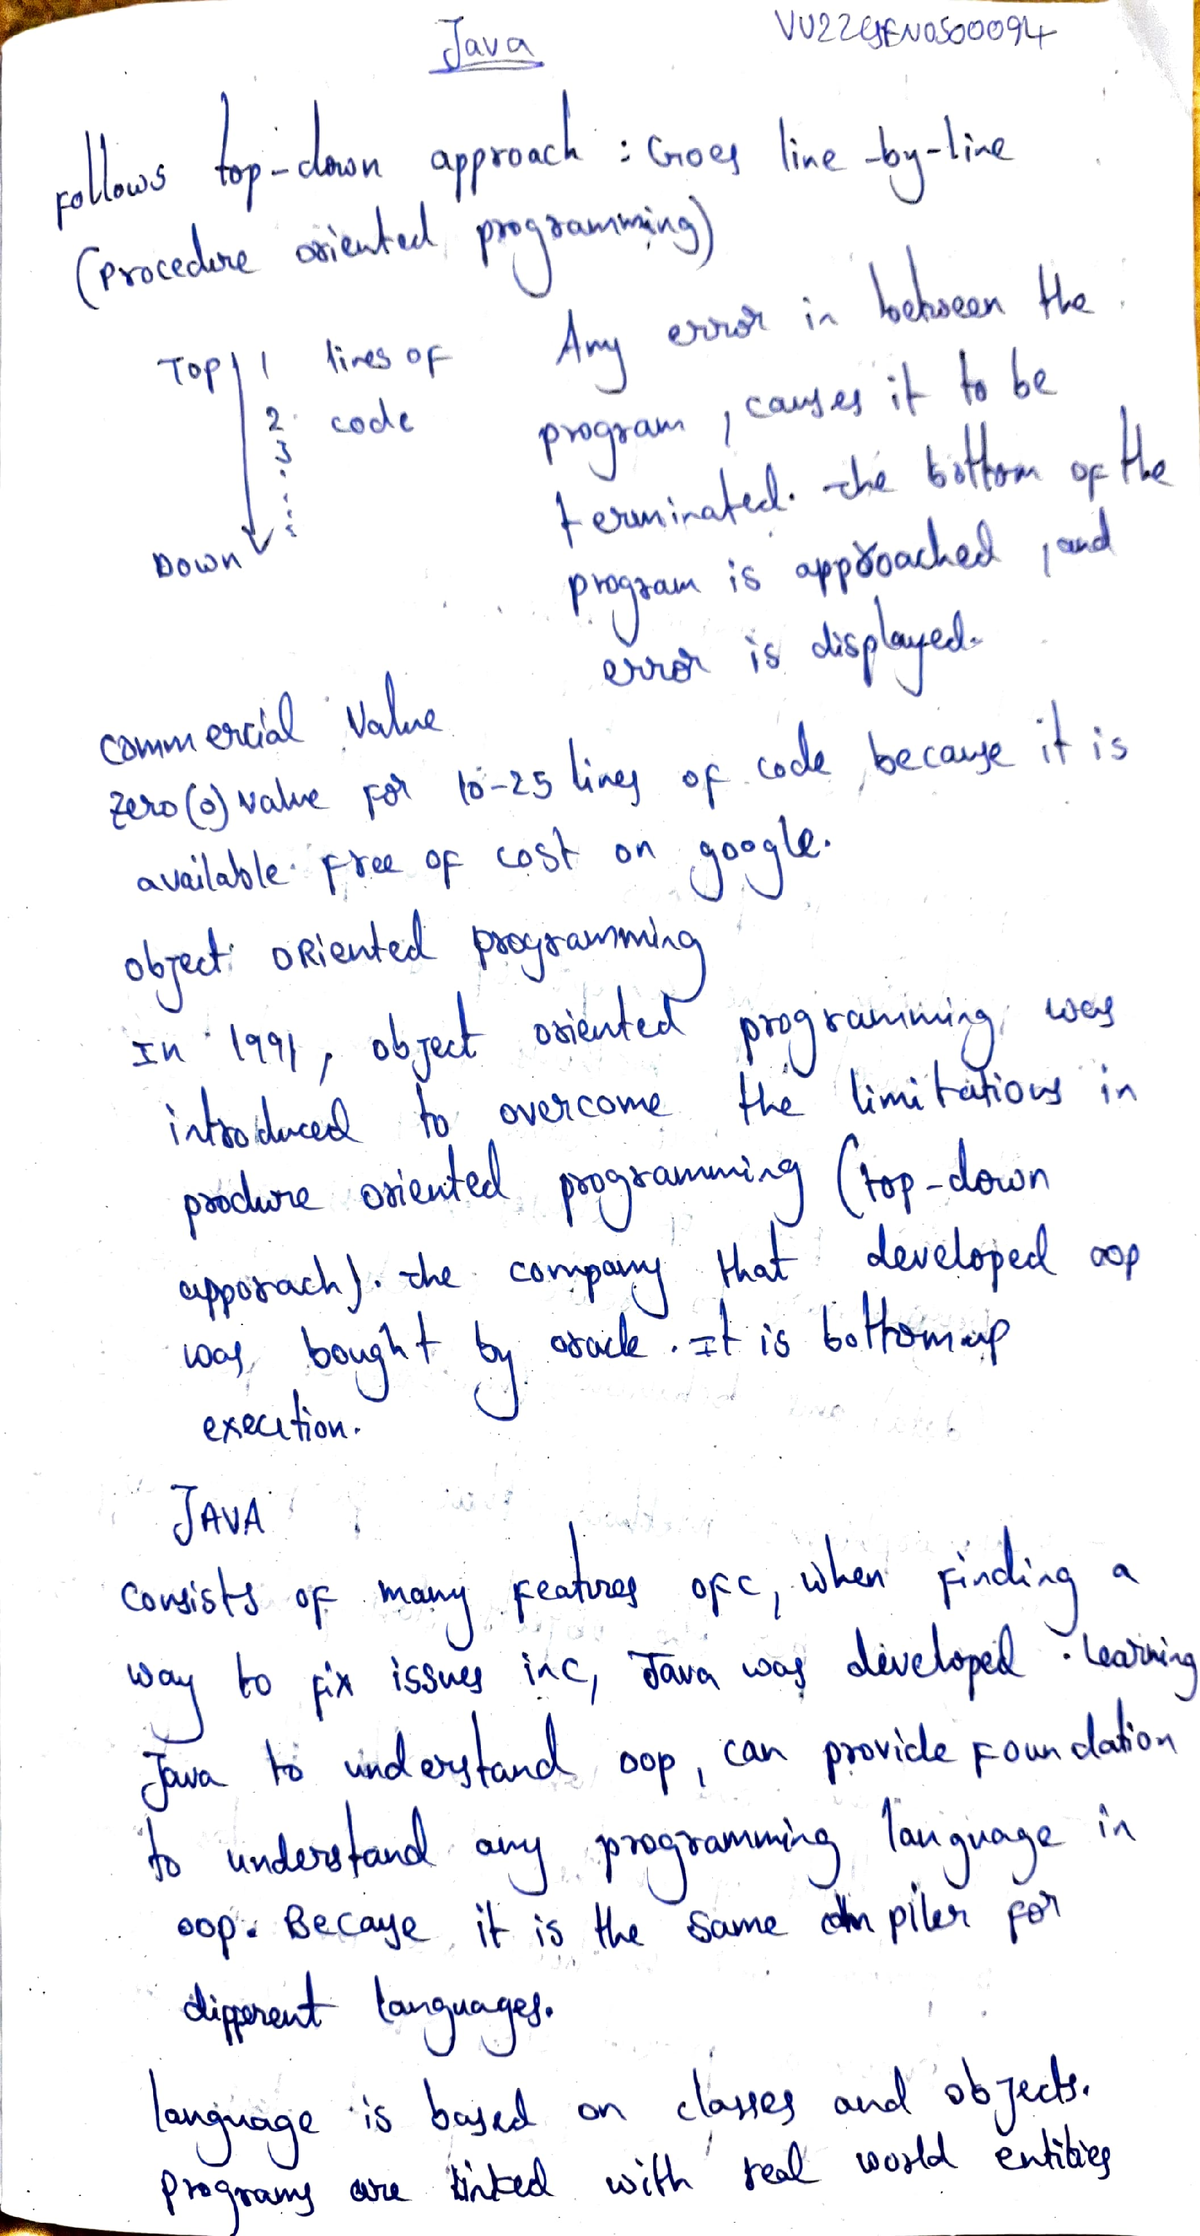 Java
VU22GEN0500094
Follows top-down approach : Goes line-by-line
(Procedure oriented programming)
Top 1 lines of
2. code
3
Down
Any error in between the
program, causes it to be
terminated. The bottom of the
program is approached, and
error is displayed.
commercial value
zero(0) value for 10-25 lines of code because it is
available free of cost on google.
object oriented programming
In 1991, object oriented programming was
introduced to overcome the limitations in
produre oriented programming (top-down
apporach). The company that developed oop
was bought by oracle. It is bottom up
execution.
JAVA
consists of many features of c, when finding a
way to fix issues in c, Java was developed. Learning
Java to understand oop, can provide foundation
to understand any programming language in
oop. Because it is the same compiler for
different languages.
language is based on classes and objects.
programs are linked with real world entities